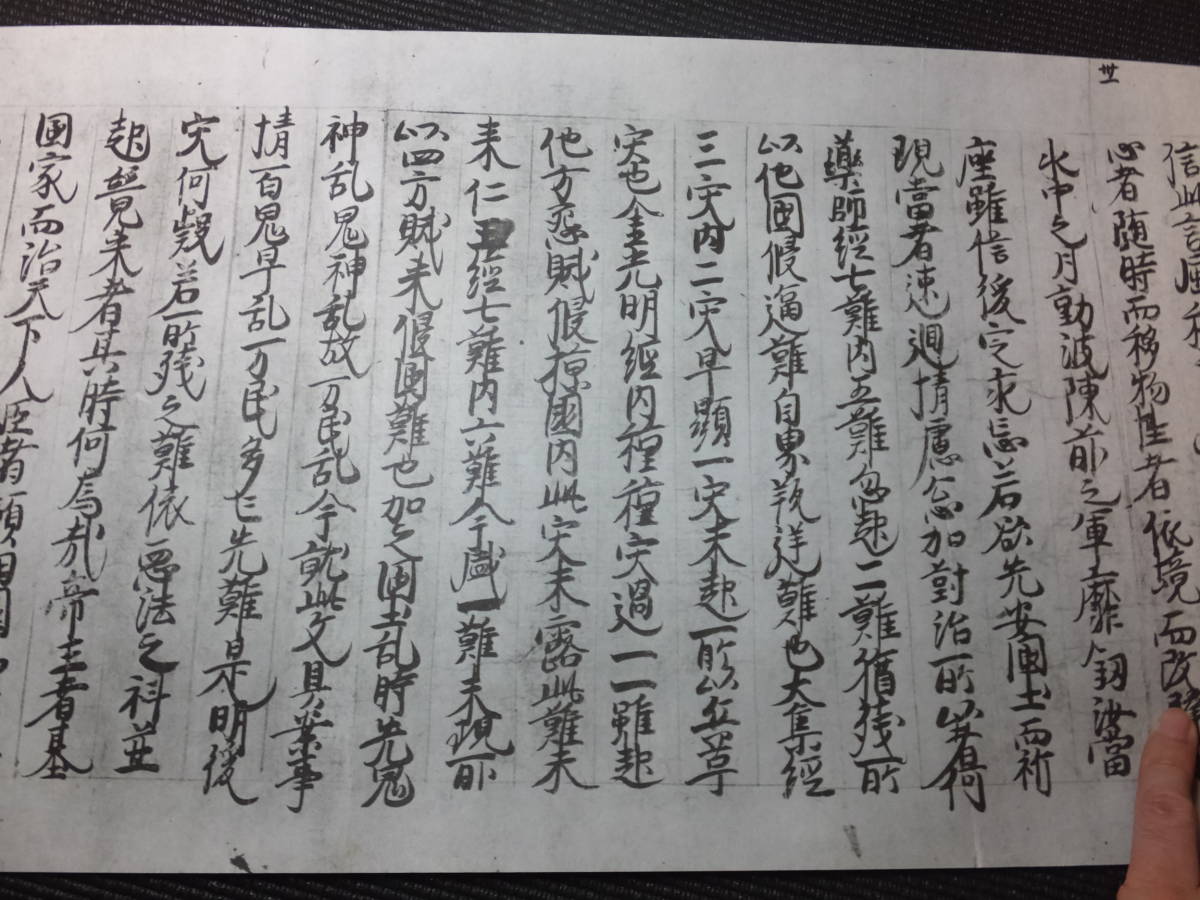 卅
信此言
心者随時而移物性者依境而改
水中之月動波陳前之軍靡釼汝當
座雖信後定永忘若欲先安国土而祈
現當者速廻情慮怱加對治所以者何
藥師經七難内五難忽起二難猶残所
以他國侵逼難自界叛逆難也大集經
三灾内二灾早顕一灾未起所以兵革
灾也金光明經内種種灾過一一雖起
他方怨賊侵掠國内此灾未露此難未
来仁王經七難内六難今盛一難未現所
以四方賊来侵国難也加之国土乱時先鬼
神乱鬼神乱故万民乱今就此文具案事
情百鬼早乱万民多亡先難是明後
灾何疑若所残之難依悪法之科並
起競来者其時何為哉帝王者基
国家而治天下人臣者領田園